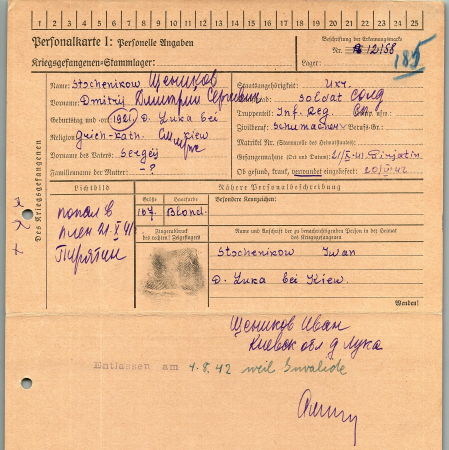 1 2 3 4 5 6 7 8 9 10 11 12 13 14 15 16 17 18 19 20 21 22 23 24 25
Personalkarte I: Personelle Angaben
Kriegsgefangenen-Stammlager:
Beschriftung der Erkennungsmarke
Nr. 12158
Lager:
185
Des Kriegsgefangenen
Name: Stschenikow Щеников
Vorname: Dmitrij Дмитрий Сергеевич
Geburtstag und -ort 1921 D. Luka bei
Religion: Griech-Kath. Kiew
Vorname des Vaters: Sergeij
Familienname der Mutter: -?
Staatsangehörigkeit: Ukr.
Soldat
Truppenteil: Inf. Reg.
Zivilberuf: Schumacher Berufs-Gr.:
Matrikel Nr. (Stammrolle des Heimatstaates):
Gefangennahme (Ort und Datum): 21/X-41 Pirjatin
Ob gesund, krank, verwundet eingeliefert:
Lichtbild
попал в
плен 21.X 41
Пирятин
Nähere Personalbeschreibung
Größe
Haarfarbe
Besondere Kennzeichen:
167
Blond.
Fingerabdruck
des rechten Zeigefingers
Name und Anschrift der zu benachrichtigenden Person in der Heimat
des Kriegsgefangenen
Stschenikow Iwan
D. Luka bei Kiew.
Wenden!
Щеников Иван
Киевск обл д Лука
Entlassen am 4.8.42 weil Invalide